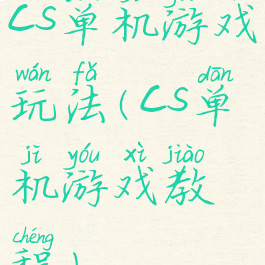 CS单机游戏
wán fǎ dān
玩法(CS单
jī yóu xì jiào
机游戏教
chéng
程)